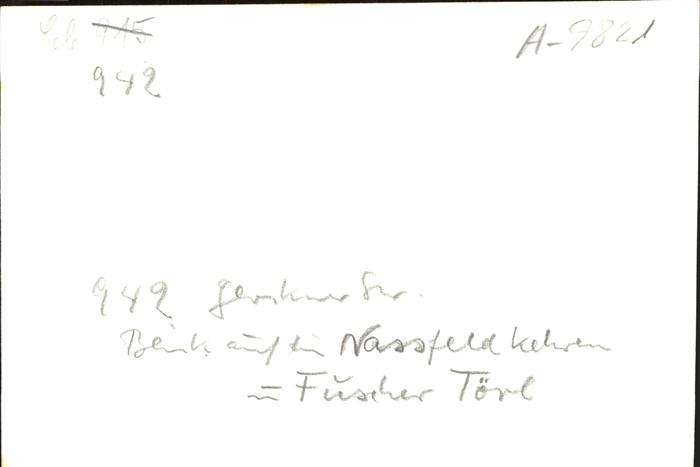 945
A-9821
942
942 Glockner Str.
Blick auf die Nassfeldkehren
u Fuscher Törl